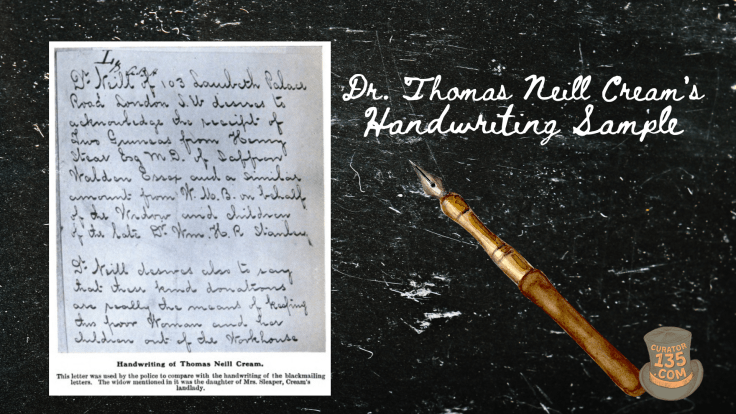 Dr Neill of 103 Lambeth Palace
Road London S.W desires to
acknowledge the receipt of
Two Guineas from Henry
Stear Esq M.D. of Saffron
Walden Essex and a similar
amount from on behalf
of the Widow and children
of the late Dr Wm. H. R. Stanley
Dr Neill desires also to say
that these kind donations
are really the means of keeping
this poor Woman and her
children out of the Workhouse
Handwriting of Thomas Neill Cream.
This letter was used by the police to compare with the handwriting of the blackmailing
letters. The widow mentioned in it was the daughter of Mrs. Sleaper, Cream's
landlady.
Dr. Thomas Neill Cream's
Handwriting Sample
CURATOR
135
.COM